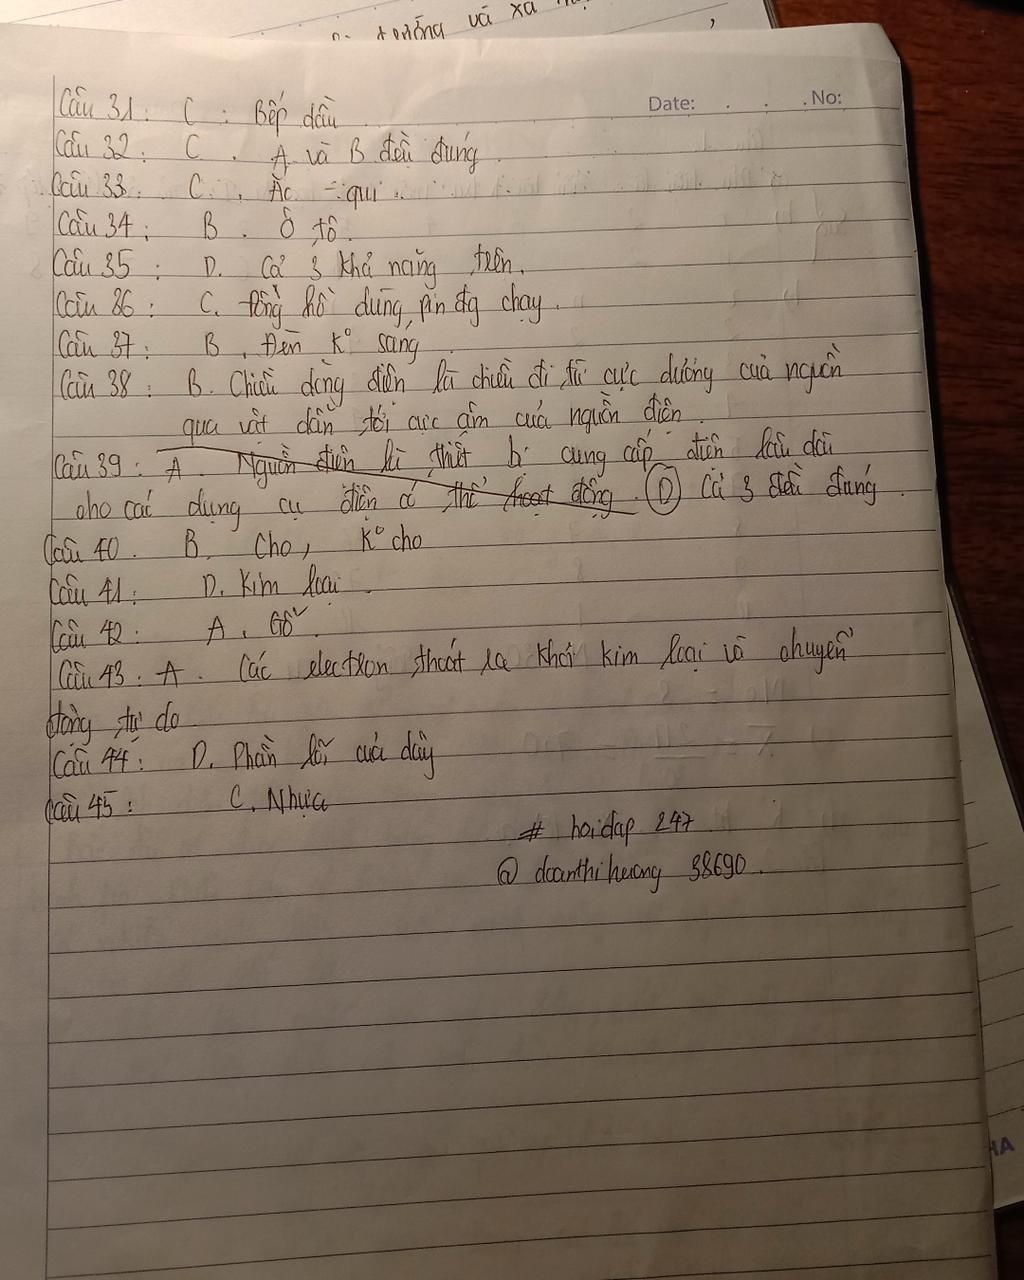 trường và xa
Date: . . . No:
Câu 31: C : Bếp dầu
Câu 32: C . A và B đều đúng.
Câu 33: C . Ắc - qui .
Câu 34: B . Ô tô.
Câu 35: D. Cả 3 khả năng trên.
Câu 36: C. Đồng hồ dùng pin đg chạy.
Câu 37: B . Đèn K° sáng.
Câu 38: B. Chiều dòng điện là chiều đi từ cực dương của nguồn
qua vật dẫn tới cực âm của nguồn điện.
Câu 39: A. Nguồn điện là thiết bị cung cấp điện lâu dài
cho các dụng cụ điện có thể hoạt động. D Cả 3 đều đúng.
Câu 40. B. Cho, K° cho
Câu 41: D. Kim loại.
Câu 42: A. Gỗ.
Câu 43: A. Các electron thoát ra khỏi kim loại và chuyển
động tự do
Câu 44: D. Phần lõi của dây
Câu 45: C. Nhựa
# hoidap 247
@ doanthihuong 38690.
HA